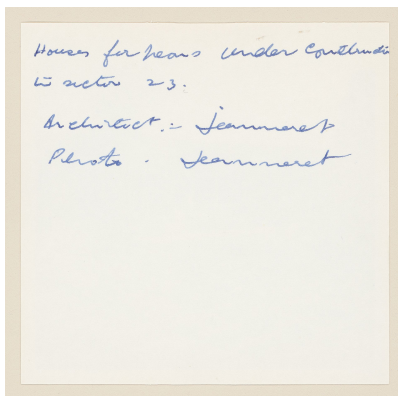 Houses for peons under Constructi
in sector 23.
Architect :- Jeanneret
Photo - Jeanneret